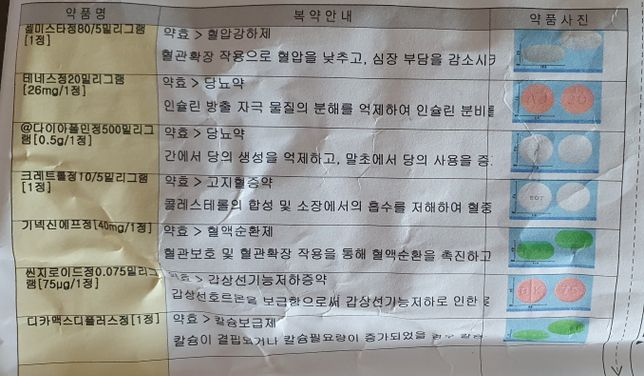 약품명 복약안내 약품사진
텔미스타정80/5밀리그램 약효 > 혈압강하제
[1정]
혈관확장 작용으로 혈압을 낮추고, 심장 부담을 감소시키
테네스정20밀리그램 약효 > 당뇨약
[26mg/1정]
인슐린 방출 자극 물질의 분해를 억제하여 인슐린 분비를
@다이아폴민정500밀리그 약효 > 당뇨약
램[0.5g/1정]
간에서 당의 생성을 억제하고, 말초에서 당의 사용을 증
크레트롤정10/5밀리그램 약효 > 고지혈증약
[1정]
콜레스테롤의 합성 및 소장에서의 흡수를 저해하여 혈중
기넥신에프정[40mg/1정] 약효 > 혈액순환제
혈관보호 및 혈관확장 작용을 통해 혈액순환을 촉진하고
씬지로이드정0.075밀리그 약효 > 갑상선기능저하증약
램[75μg/1정]
갑상선호르몬을 보급함으로써 갑상선기능저하로 인한
디카맥스디플러스정[1정] 약효 > 칼슘보급제
칼슘이 결핍되거나 칼슘필요량이 증가되었을 경우 칼슘